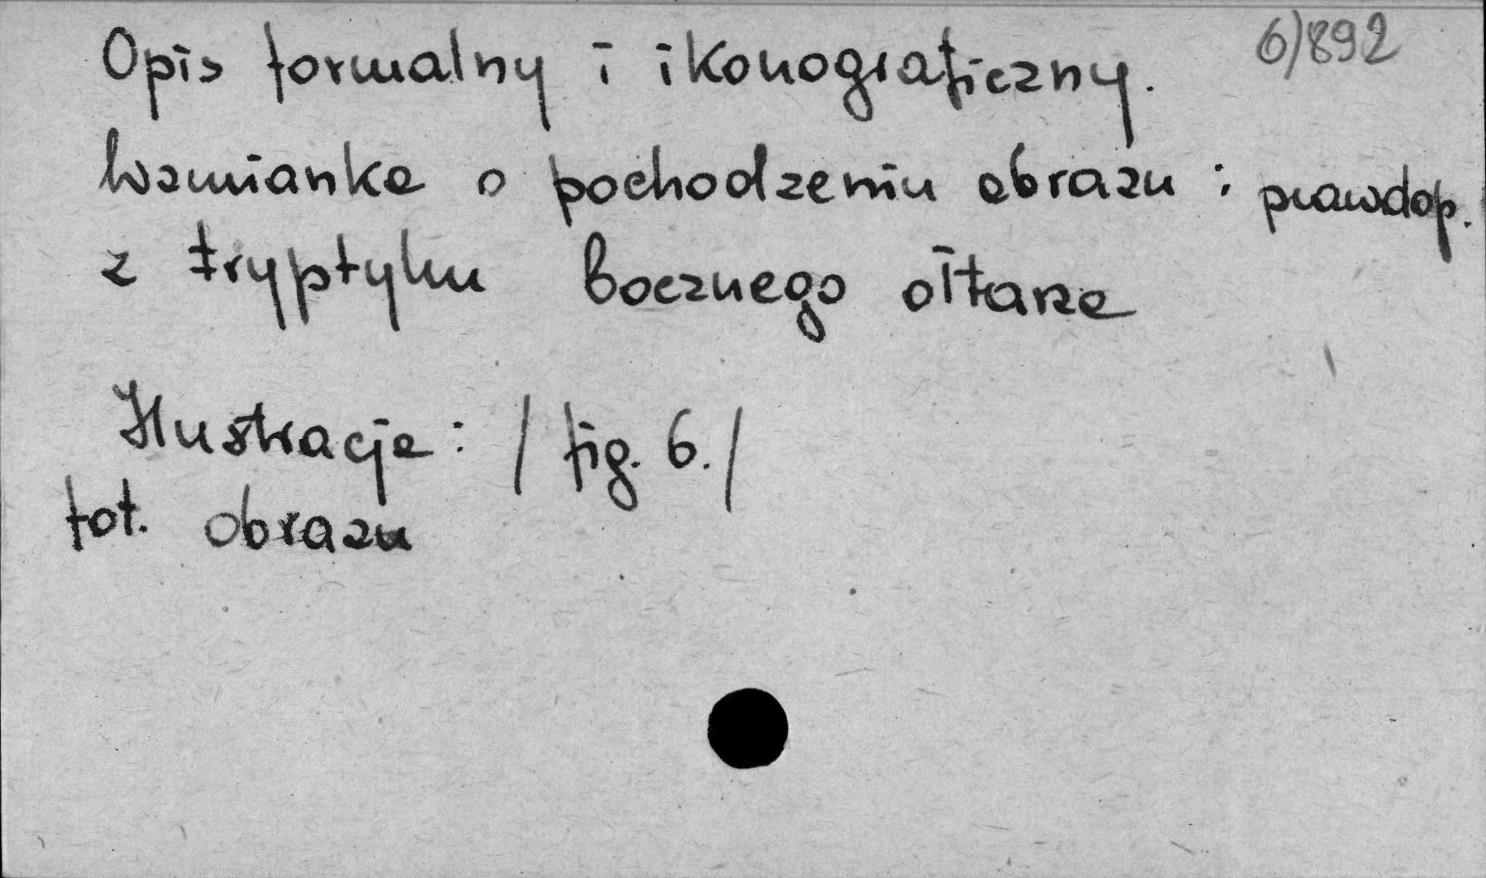 6)892
Opis formalny i ikonograficzny.
Wzmianka o pochodzeniu obrazu : prawdop.
z tryptyku bocznego ołtarza
Ilustracje : / fig. 6. /
fot. obrazu